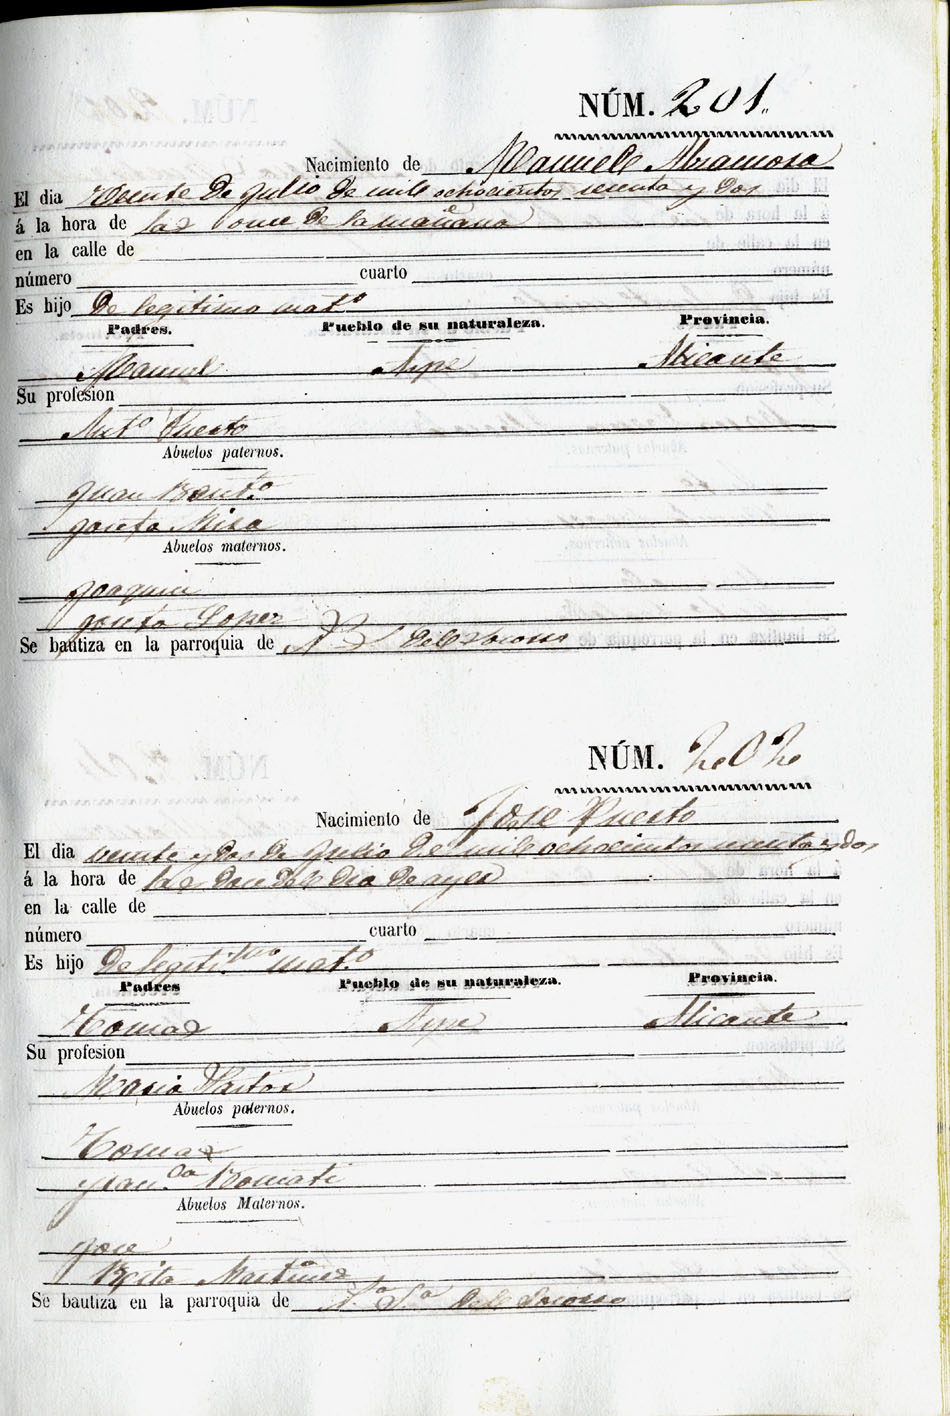 NÚM. 201.
Nacimiento de Manuel Miramora
El dia Veinte de Julio de mil ochocientos secenta y dos
á la hora de las once de la mañana
en la calle de
número cuarto
Es hijo De legitimo mat.º
Padres. Pueblo de su naturaleza. Provincia.
Manuel Aspe Alicante
Su profesion
Ant.ª Puerto
Abuelos paternos.
Juan Baut.ª
Josefa Mira
Abuelos maternos.
Joaquin
Josefa Lopez
Se bautiza en la parroquia de N.ª S.ª del Socorro
NÚM. 202
Nacimiento de José Puerto
El dia veinte y dos de Julio de mil ochocientos secenta y dos
á la hora de las doce del dia de ayer
en la calle de
número cuarto
Es hijo De legitimo mat.º
Padres Pueblo de su naturaleza. Provincia.
Tomas Aspe Alicante
Su profesion
Maria Pastor
Abuelos paternos.
Tomas
Fran.ca
Abuelos Maternos.
Jose
Rita Martinez
Se bautiza en la parroquia de N.ª S.ª del Socorro